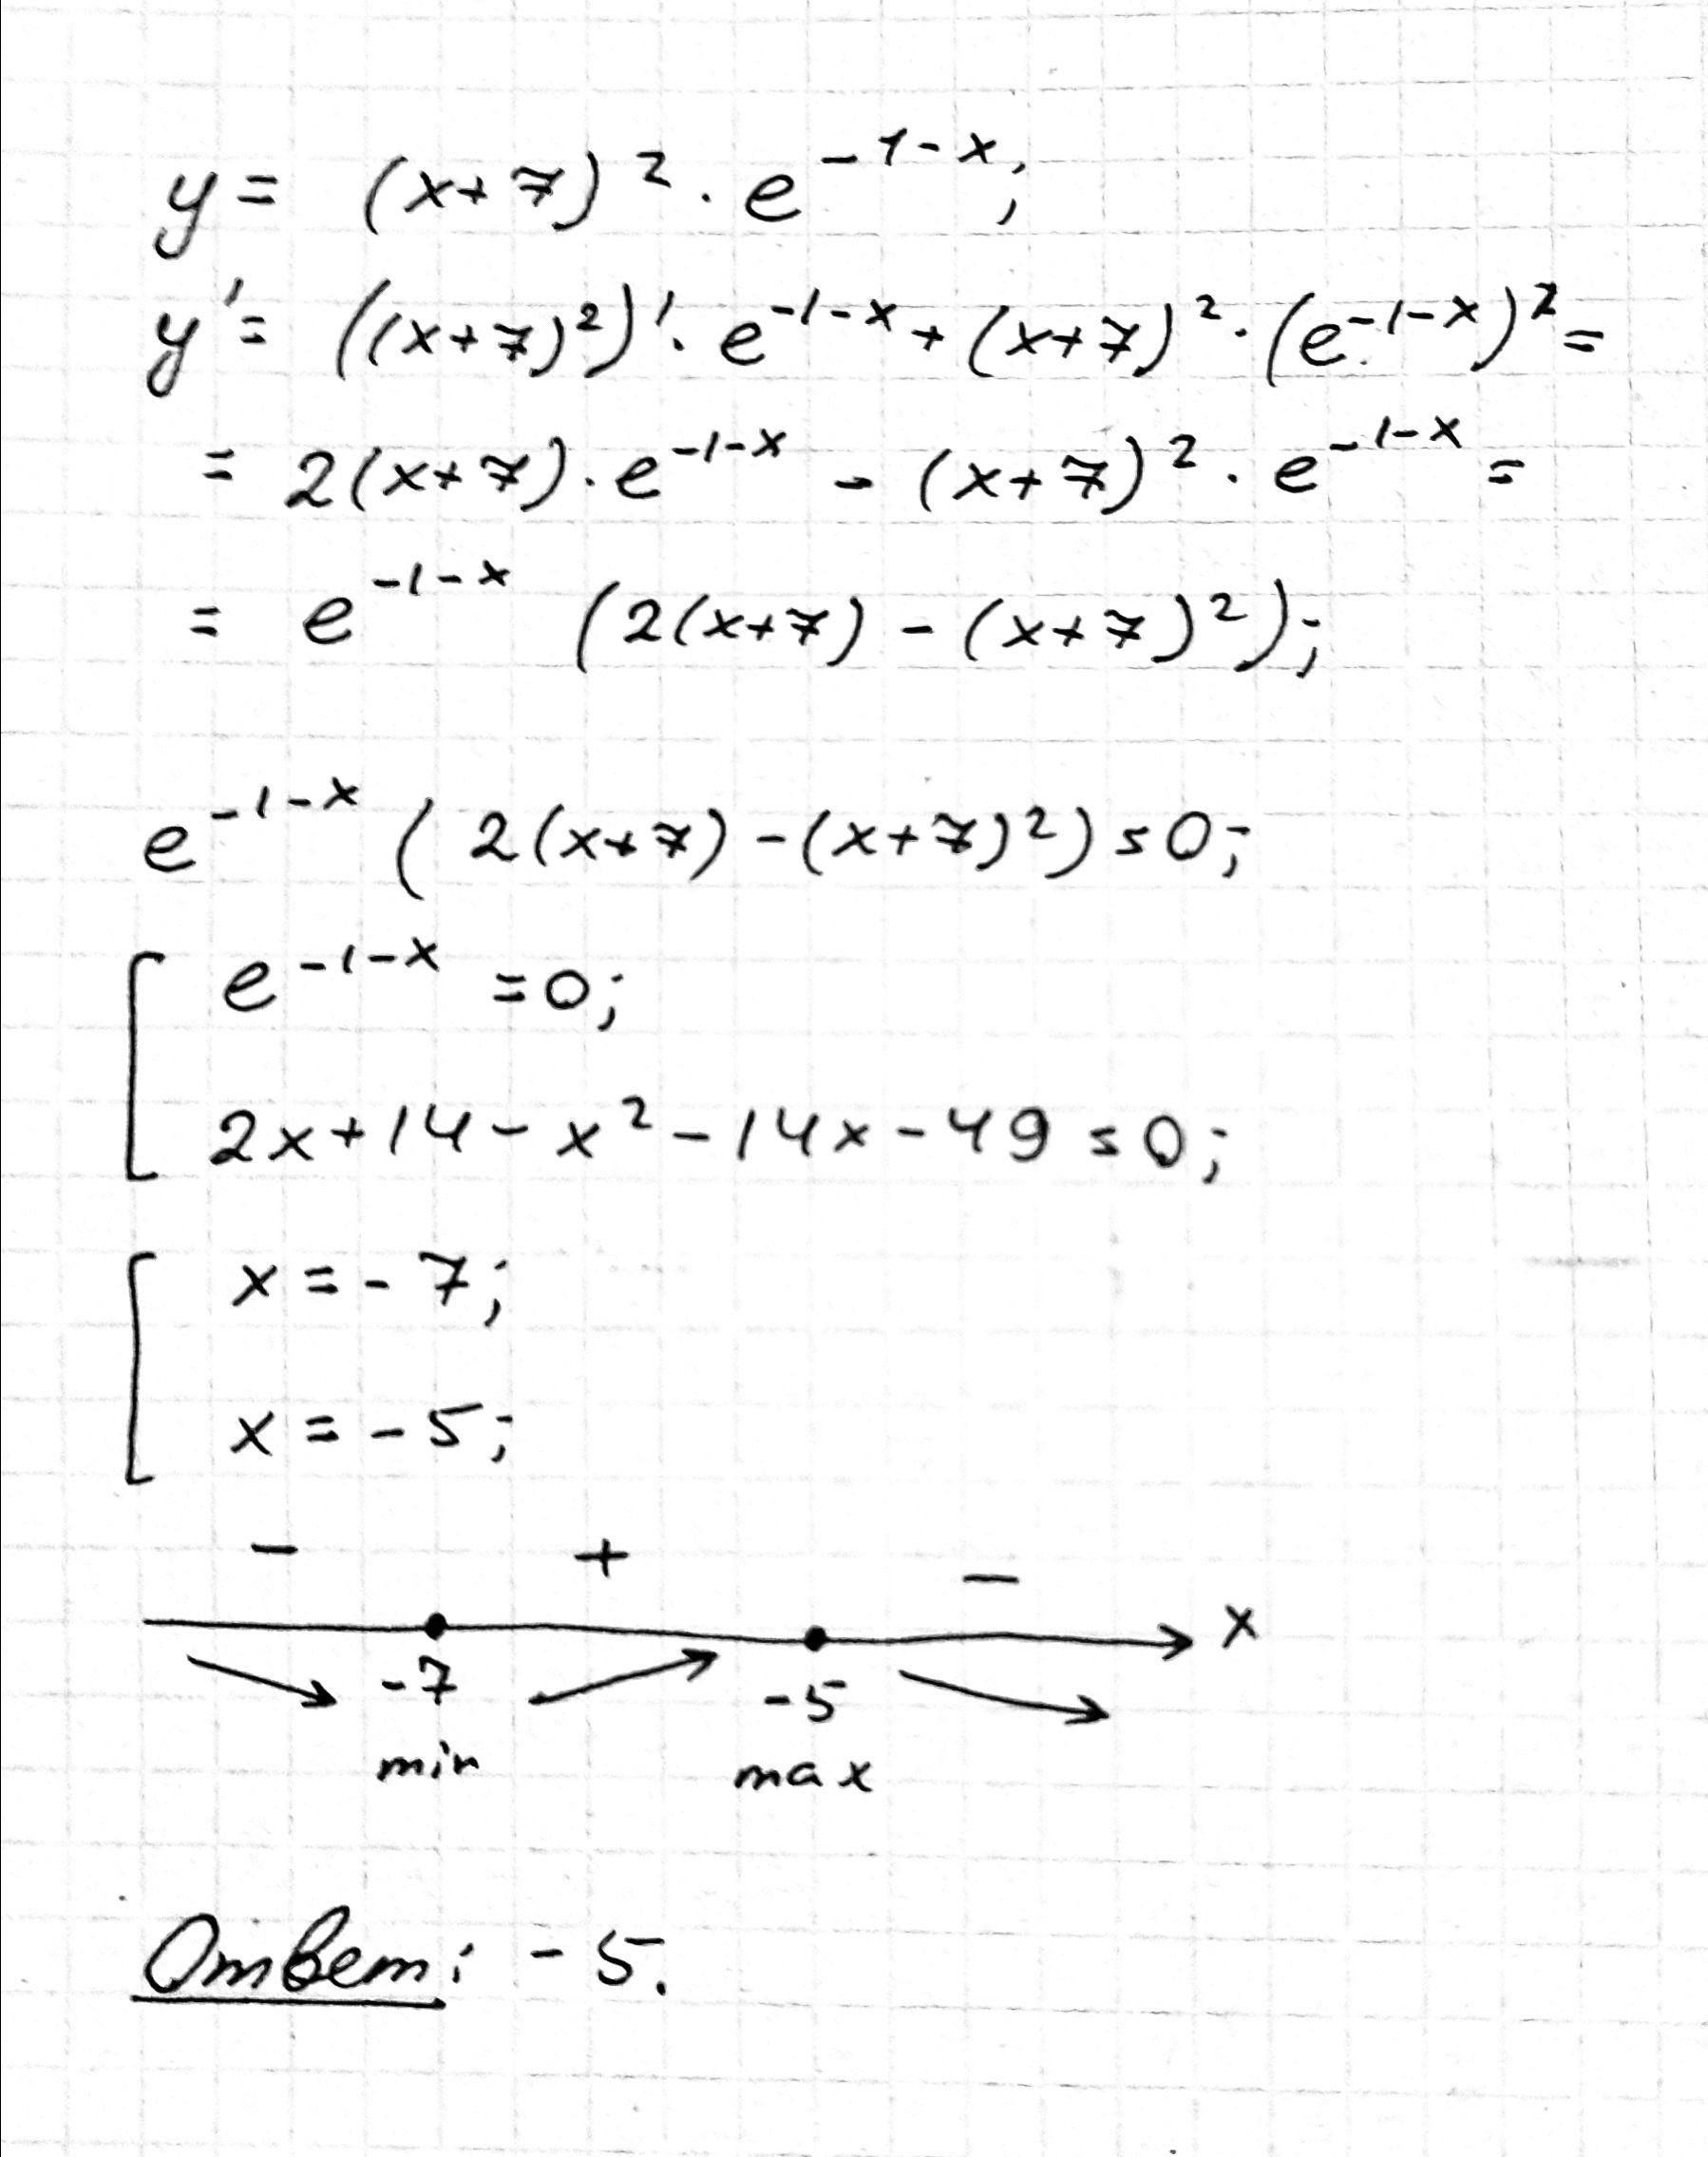 y = (x+7)² · e^{-1-x};
y' = ((x+7)²)' · e^{-1-x} + (x+7)² · (e^{-1-x})² =
= 2(x+7) · e^{-1-x} - (x+7)² · e^{-1-x} =
= e^{-1-x} (2(x+7) - (x+7)²);
e^{-1-x} (2(x+7) - (x+7)²) = 0;
[ e^{-1-x} = 0;
2x+14 - x² - 14x - 49 = 0;
[ x = -7;
x = -5;
- + -
x
-7 -5
min max
Ответ: -5.